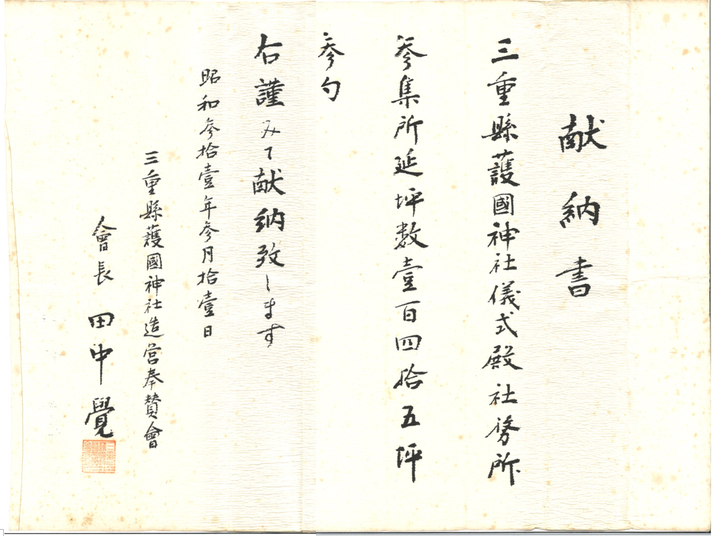 献納書
三重縣護國神社儀式殿社務所
参集所延坪数壹百四拾五坪
参勺
右謹みて献納致します
昭和参拾壹年参月拾壹日
三重縣護國神社造営奉賛會
會長 田中覺